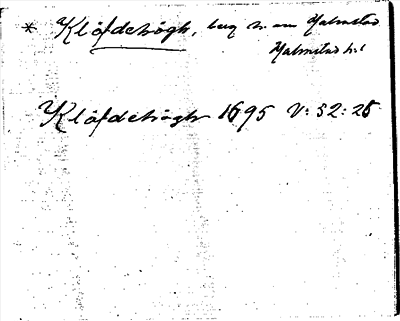 * Klöfdehögh, berg n. om Halmstad
Halmstad hd
Klöfdehögh 1695 V: 32: 28